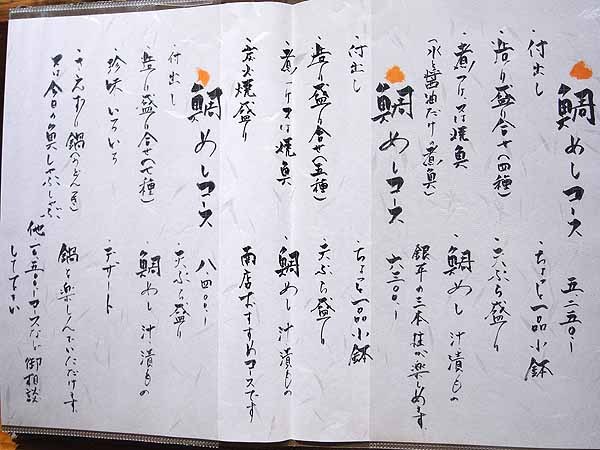 鯛めしコース 五二五〇ー
・付出し ・ちょっと一品小鉢
・造り盛り合せ(四種) ・天ぷら盛り
・煮つけ又は焼魚 ・鯛めし 汁 漬もの
(水と醤油だけの煮魚) 銀平の三本柱が楽しめます。
鯛めしコース 六三〇〇ー
・付出し ・ちょっと一品小鉢
・造り盛り合せ(五種) ・天ぷら盛り
・煮つけ又は焼魚 ・鯛めし 汁 漬もの
・炭火焼盛り 当店おすすめコースです
鯛めしコース 八四〇〇ー
・付出し ・天ぷら盛り
・造り盛り合せ(七種) ・鯛めし 汁 漬もの
・珍味いろいろ ・デザート
・さえずり鍋(うどんつき) 鍋も楽しんでいただけます。
又は今日の魚しゃぶしゃぶ
他一〇五〇〇ーコースなど御相談
して下さい